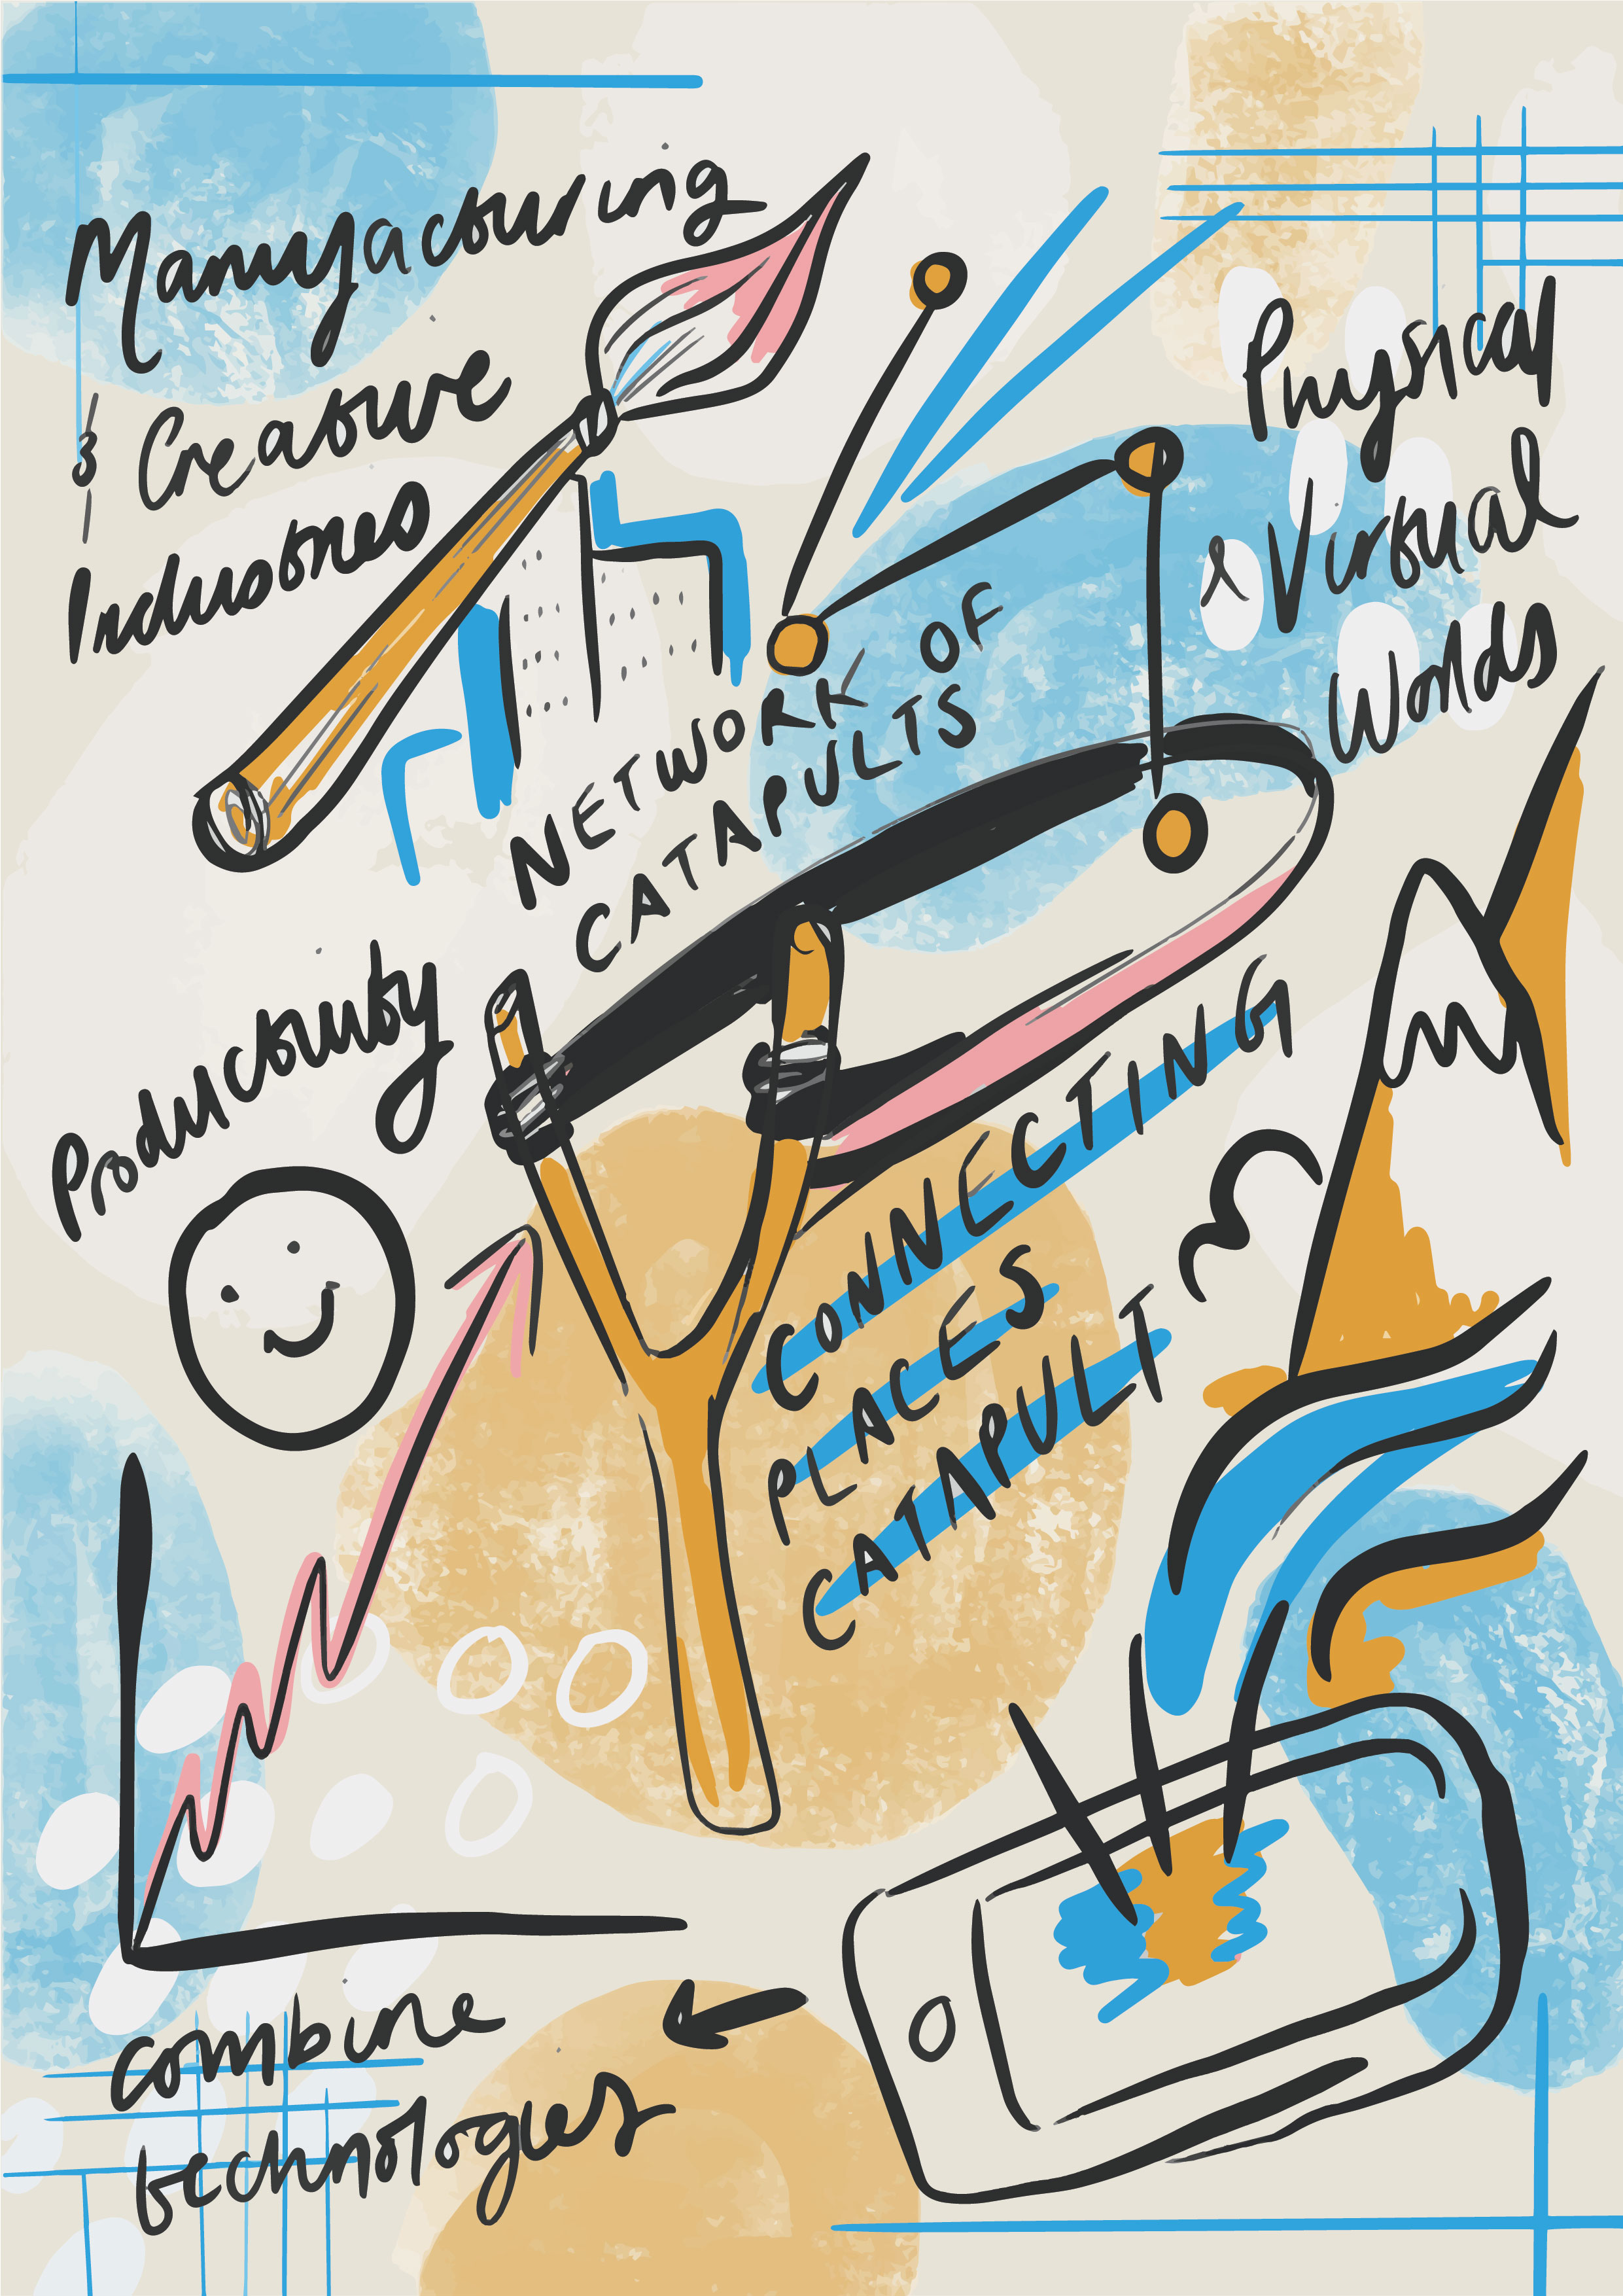 Manufacturing
& Creative
Industries
Physical
& Virtual
Worlds
NETWORK OF
CATAPULTS
Productivity
CONNECTING
PLACES
CATAPULT
combine
technologies